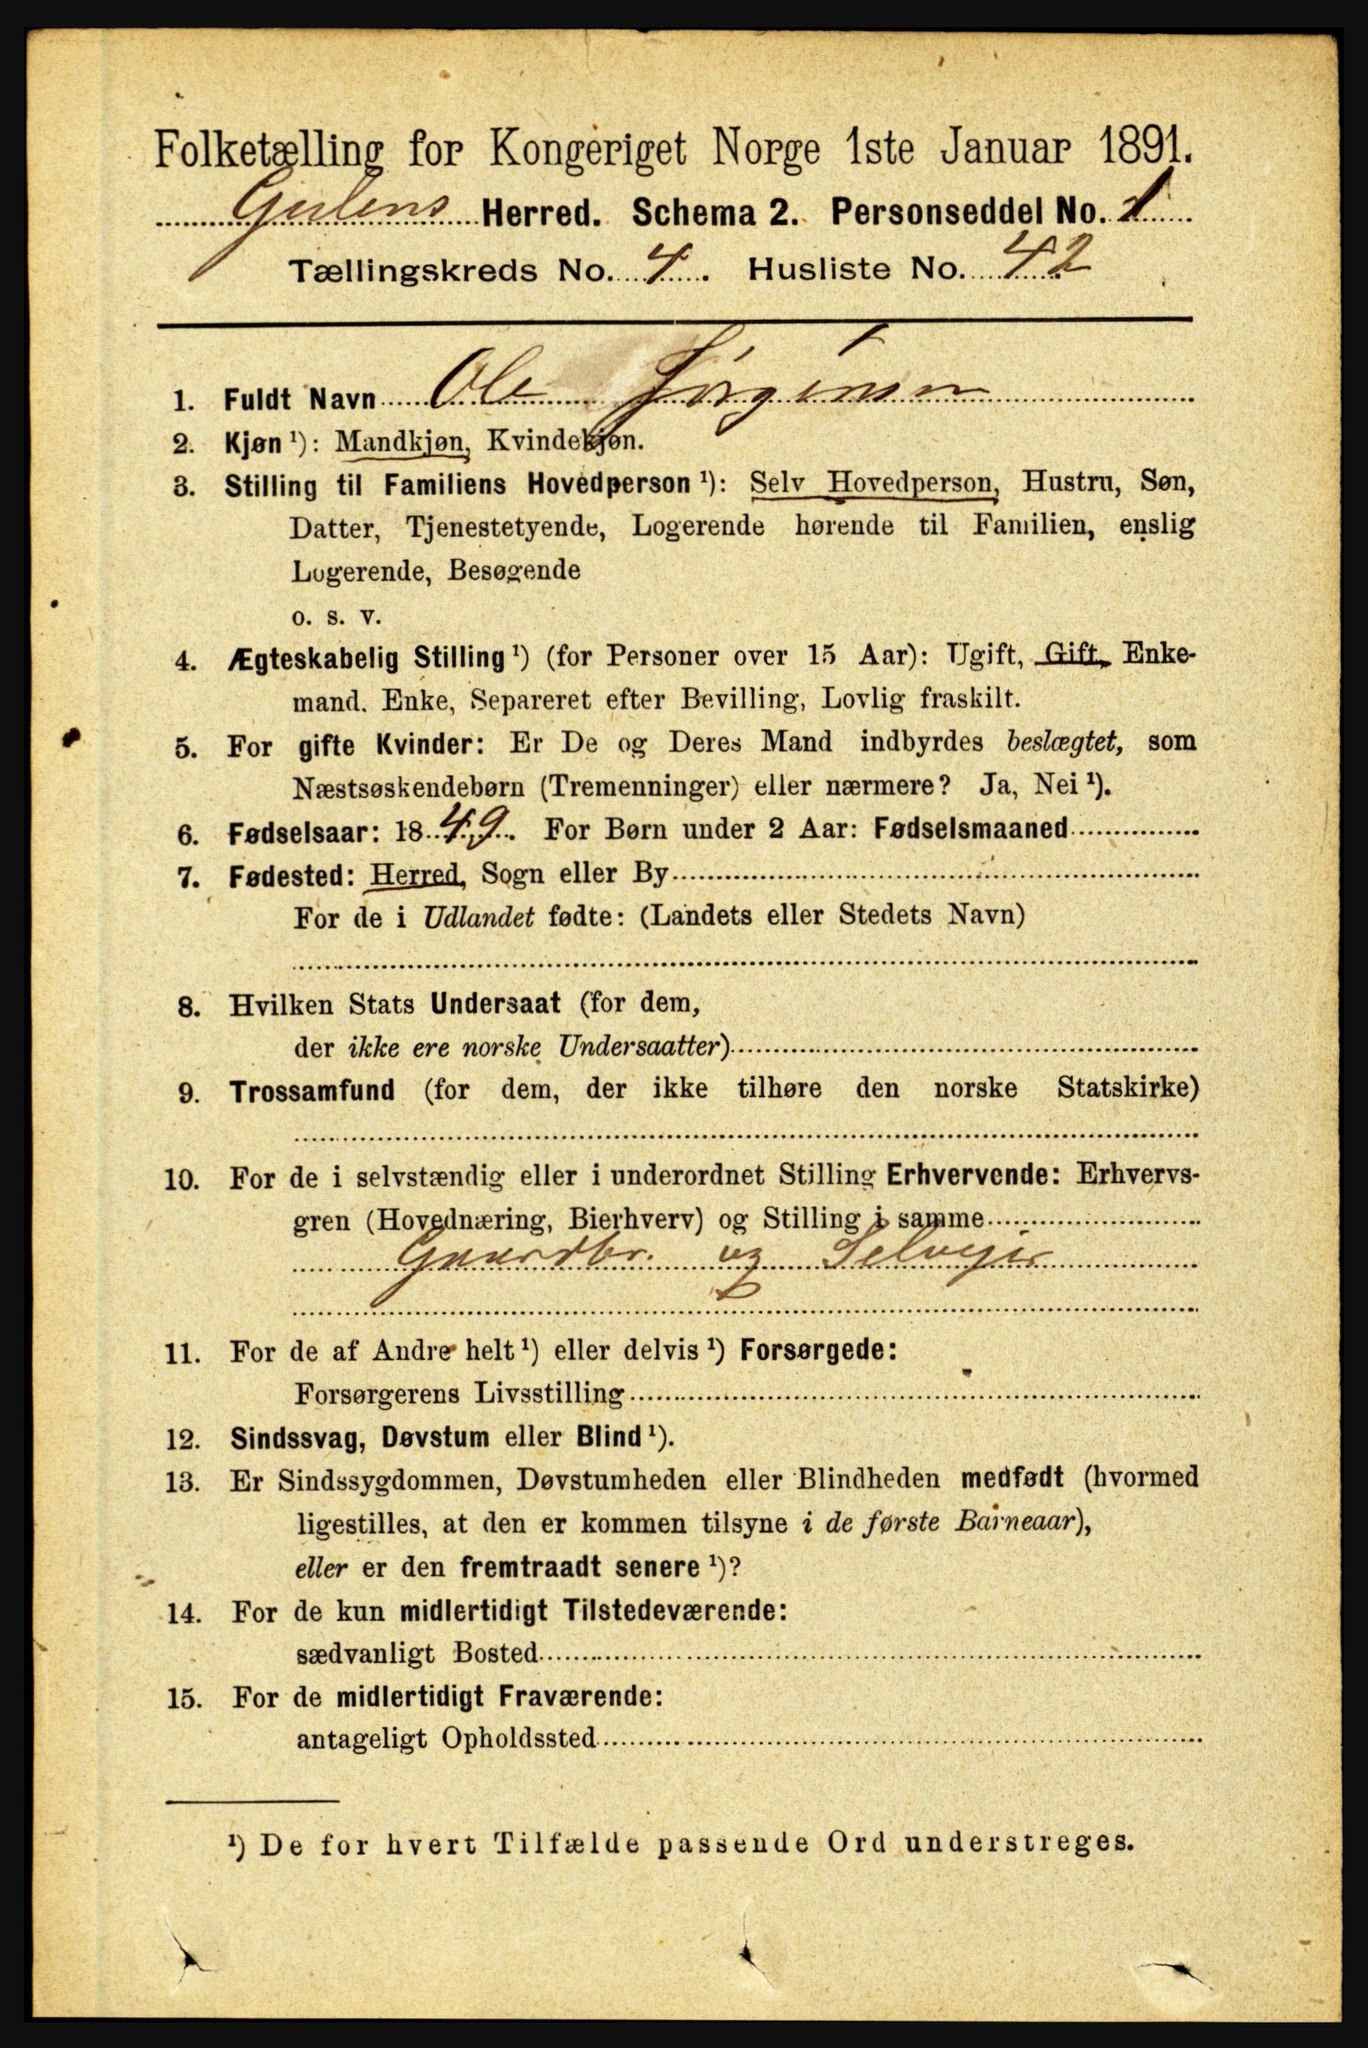 Folketælling for Kongeriget Norge 1ste Januar 1891.
Gulens Herred. Schema 2. Personseddel No. 1
Tællingskreds No. 4. Husliste No. 42
1. Fuldt Navn Ole Jørgensen
2. Kjøn ¹): Mandkjøn, Kvindekjøn.
3. Stilling til Familiens Hovedperson ¹): Selv Hovedperson, Hustru, Søn,
Datter, Tjenestetyende, Logerende hørende til Familien, enslig
Logerende, Besøgende
o. s. v.
4. Ægteskabelig Stilling ¹) (for Personer over 15 Aar): Ugift, Gift, Enke-
mand. Enke, Separeret efter Bevilling, Lovlig fraskilt.
5. For gifte Kvinder: Er De og Deres Mand indbyrdes beslægtet, som
Næstsøskendebørn (Tremenninger) eller nærmere? Ja, Nei ¹).
6. Fødselsaar: 1849. For Børn under 2 Aar: Fødselsmaaned
7. Fødested: Herred, Sogn eller By
For de i Udlandet fødte: (Landets eller Stedets Navn)
8. Hvilken Stats Undersaat (for dem,
der ikke ere norske Undersaatter)
9. Trossamfund (for dem, der ikke tilhøre den norske Statskirke)
10. For de i selvstændig eller i underordnet Stilling Erhvervende: Erhvervs-
gren (Hovednæring, Bierhverv) og Stilling i samme
Gaardbr. og Selveier
11. For de af Andre helt ¹) eller delvis ¹) Forsørgede:
Forsørgerens Livsstilling
12. Sindssvag, Døvstum eller Blind ¹).
13. Er Sindssygdommen, Døvstumheden eller Blindheden medfødt (hvormed
ligestilles, at den er kommen tilsyne i de første Barneaar),
eller er den fremtraadt senere ¹)?
14. For de kun midlertidigt Tilstedeværende:
sædvanligt Bosted
15. For de midlertidigt Fraværende:
antageligt Opholdssted
¹) De for hvert Tilfælde passende Ord understreges.